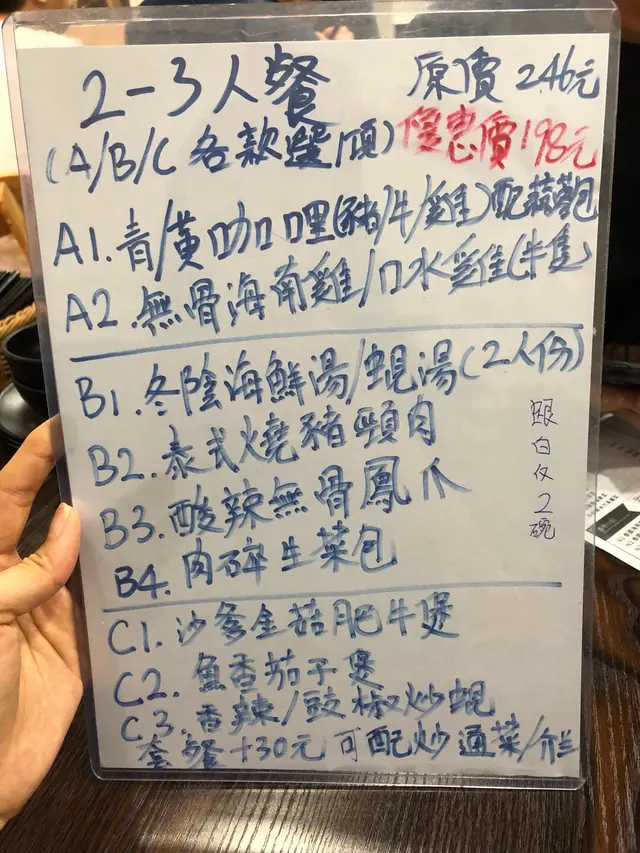 2-3人餐
原價 246元
(A/B/C 各款選1項)
優惠價198元
A1.青/黃咖喱(豬/牛/雞)配蒜蓉包
A2.無骨海南雞/口水雞(半隻
B1.冬陰海鮮湯/蜆湯(2人份)
B2.泰式燒豬頸肉
B3.酸辣無骨鳳爪
B4.肉碎生菜包
跟白仮2碗
C1.沙爹金菇肥牛煲
C2.魚香茄子煲
C3.香辣/豉椒炒蜆
套餐+30元 可配炒通菜/介兰